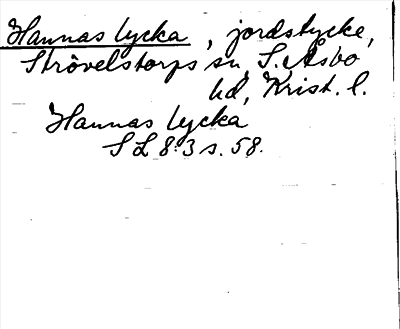 Hannas lycka, jordstycke,
Strövelstorps sn, S. Åsbo
hd, Krist. l.
Hannas lycka
SL 8:3 s. 58.